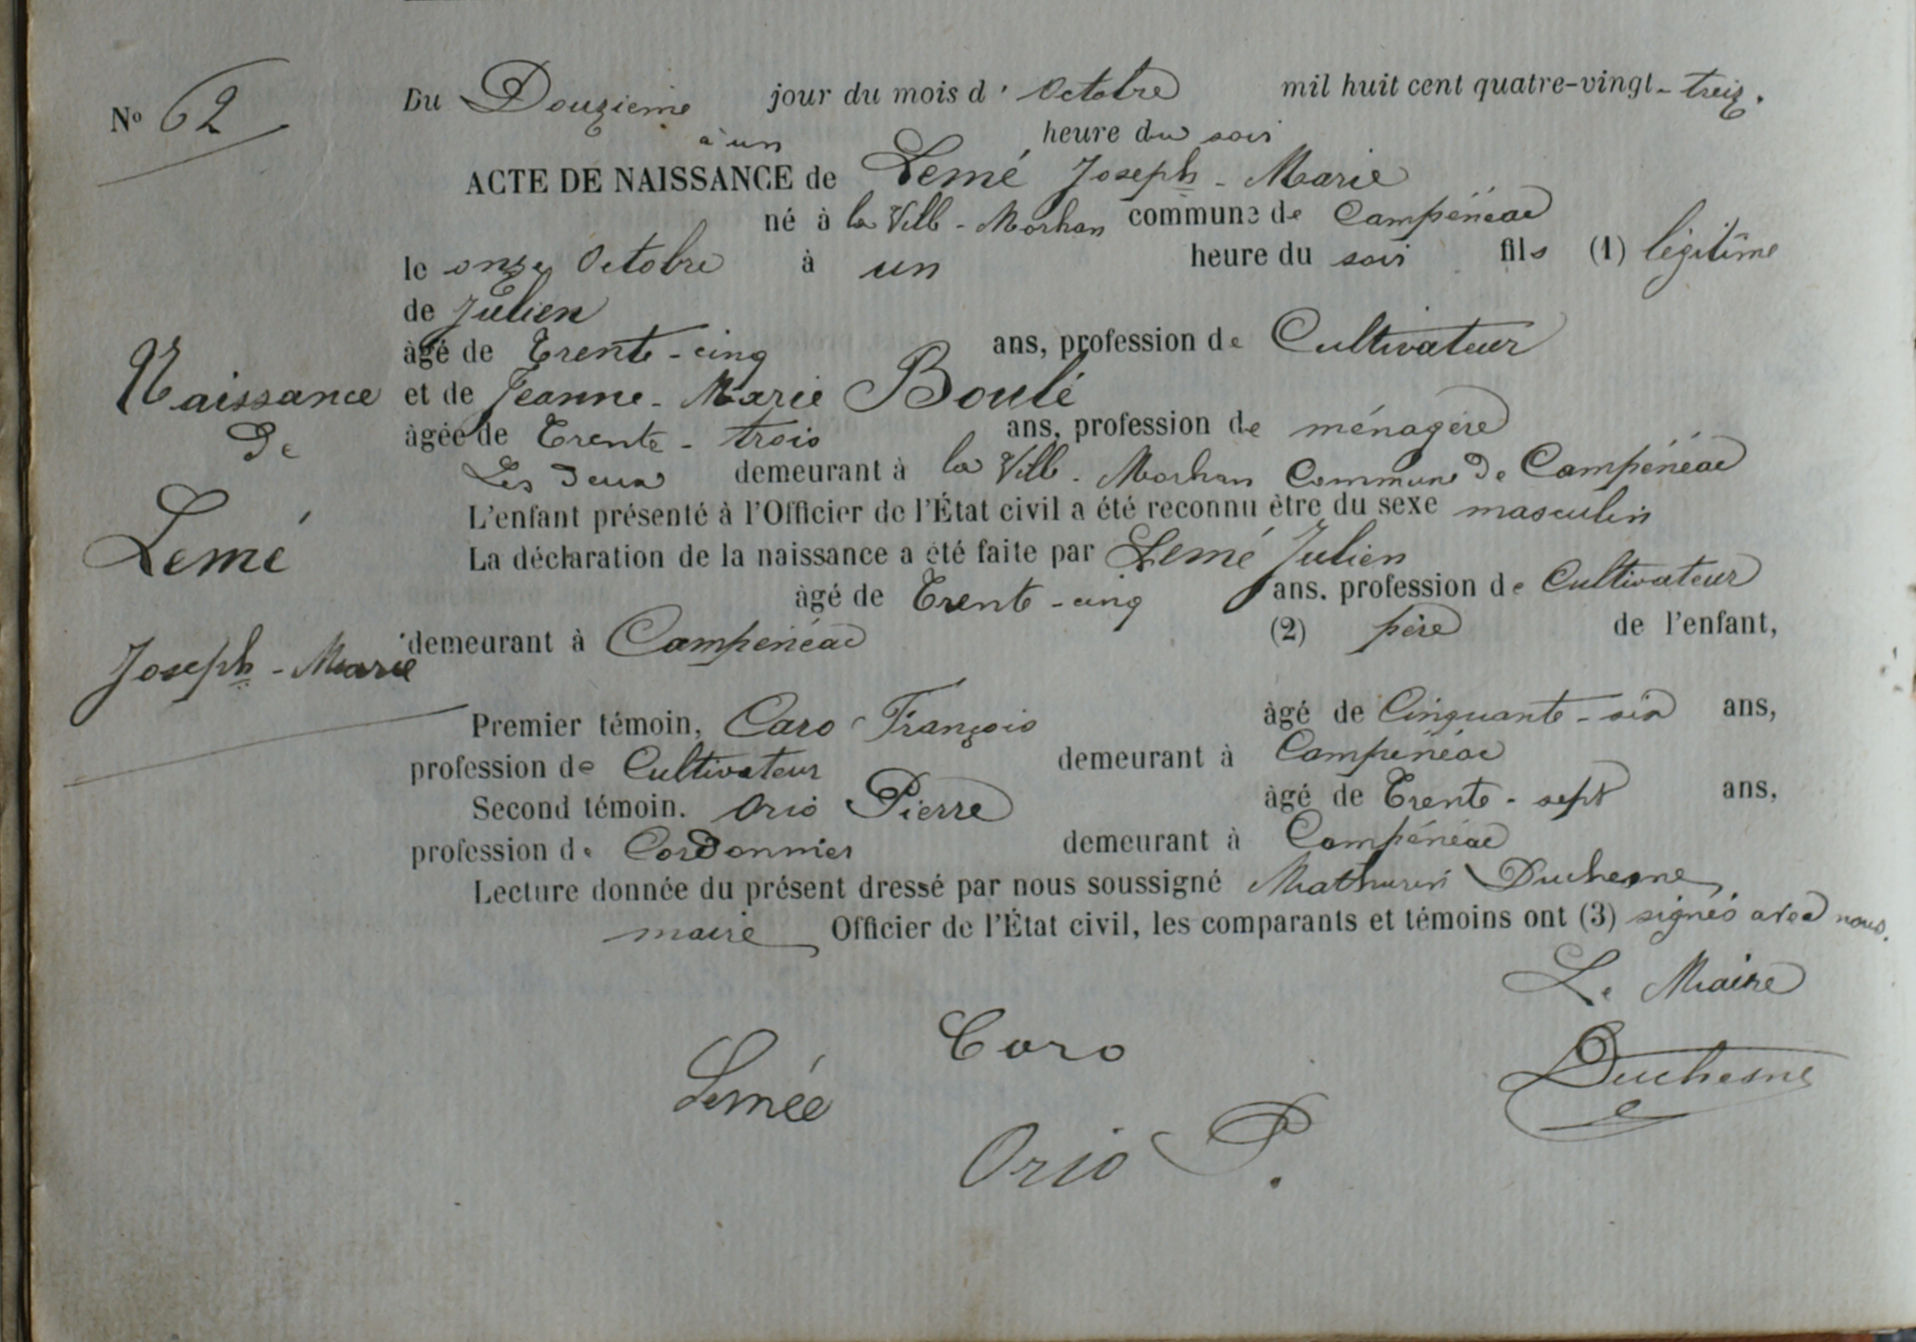 No 62
Du Douzieme jour du mois d' Octobre mil huit cent quatre-vingt-treiz.
à un heure du soir
ACTE DE NAISSANCE de Lemé Joseph-Marie
né à la Vill-Morhan commune de Campénéac
le onze Octobre à un heure du soir fils (1) légitime
de Julien
âgé de Trente-cinq ans, profession de Cultivateur
Naissance
et de Jeanne-Marie Boulé
De
âgée de Trente-trois ans, profession de ménagère
Les Deux demeurant à la Vill-Morhan Commune De Campénéac
L'enfant présenté à l'Officier de l'État civil a été reconnu être du sexe masculin
Lemé
La déclaration de la naissance a été faite par Lemé Julien
âgé de Trente-cinq ans. profession de Cultivateur
demeurant à Campénéac (2) père de l'enfant,
Joseph-Marie
Premier témoin, Caro François âgé de Cinquante-six ans,
profession de Cultivateur demeurant à Campénéac
Second témoin. Orio Pierre âgé de Trente-sept ans,
profession de Cordonnier demeurant à Campénéac
Lecture donnée du présent dressé par nous soussigné Mathurin Duchesne,
maire Officier de l'État civil, les comparants et témoins ont (3) signés avec nous.
Le Maire
Caro
Lemée
Duchesne
Orio P.